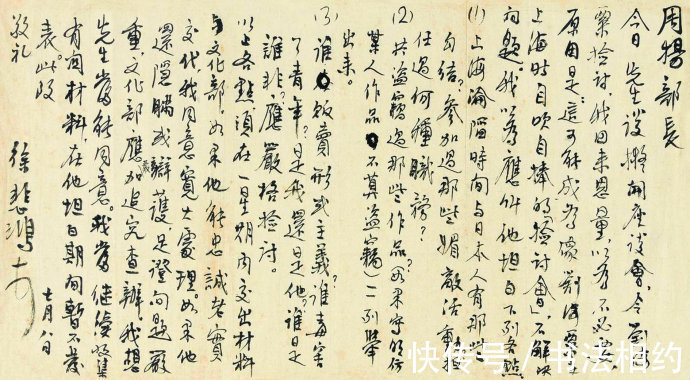 周扬部长
今日先生谈拟开座谈会，令刘海
粟检讨，我回来思量，以为不必要，
原因是：这可能成为
上海时自吹自捧的检讨会，不解决
问题。我以为应叫他坦白下列各点
(1) 上海沦陷时间与日本人有那些
勾结？参加过那些媚敌活动？担
任过何种职务？
(2) 共盗窃过那些作品？如果
某人作品 不莫盗窃 一一列举
出来。
(3) 谁贩卖形式主义？谁毒害
了青年？是我还是他？谁是
谁非？应严格检讨。
以上各点，须在一星期内交出材料
与文化部，如果他能忠诚老实
交代，我同意宽大处理。如果他
还隐瞒或辩护，足证问题严
重，文化部应加追究查办。我想
先生当能同意。我当继续收集
有关材料，在他坦白期间暂不发
表。此致
敬礼
徐悲鸿
七月八日
快传号／书法相约